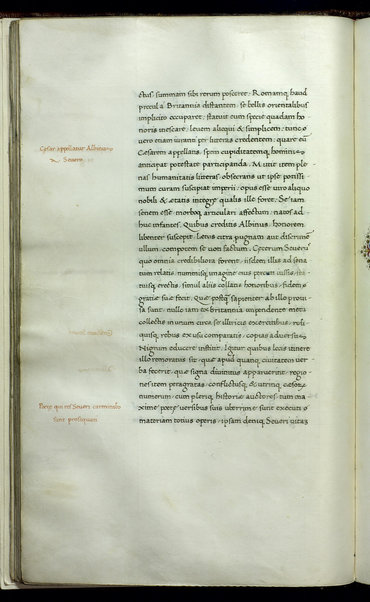 ctus, summam sibi rerum posceret. Romamq; haud
procul a Britannia distantem, se bellis orientalibus
implicito occuparet, statuit eum specie quadam ho
Cæsar appellatur Albinus
a Seuero
noris inescare, leuem alioqui & simplicem, tunc
uero etiam iuranti per literas credentem. quare eum
Cæsarem appellans, spem cupiditatemq; hominis
anticipat potestate participanda. Mittit item ple
nas humanitatis literas, obsecrans ut ipse potissi
mum curam suscipiat imperii. opus esse uiro aliquo
nobili & ętatis integrę qualis ille foret. Se iam
senem esse morboq; articulari affectum. natos ad
huc infantes. Quibus creditis Albinus, honorem
libenter suscepit. Letus citra pugnam aut discrimen
ullum, compotem se uoti factum. Ceterum Seuerus
quo omnia credibiliora forent, iisdem illis ad sena
tum relatis, nummisq; imagine eius percussis, sta
tuisq; erectis, simul aliis collatis honoribus, fidem
gratię suę fecit. Quæ postq; sapienter ab illo proui
sa sunt, nullo iam ex britannia impendente metu
collectis in unum circa se illyricis exercitibus, reli
quisq; rebus ex usu comparatis, copias aduersus
Nigrum educere instituit. Igitur quibus locis itinere
ille remoratus sit, quæ apud quanq; ciuitatem uer
ba fecerit, quæ signa diuinitus apparuerint, regio
nes item peragratas, conflictusq; & utrinq; cæsorum
numerum, cum pleriq; historiæ auctores, tum ma
Poetę qui res Seueri carminibus
sunt prosequuti
xime poetę uersibus suis uberrime sunt executi
materiam totius operis, ipsam deniq; Seueri uitam